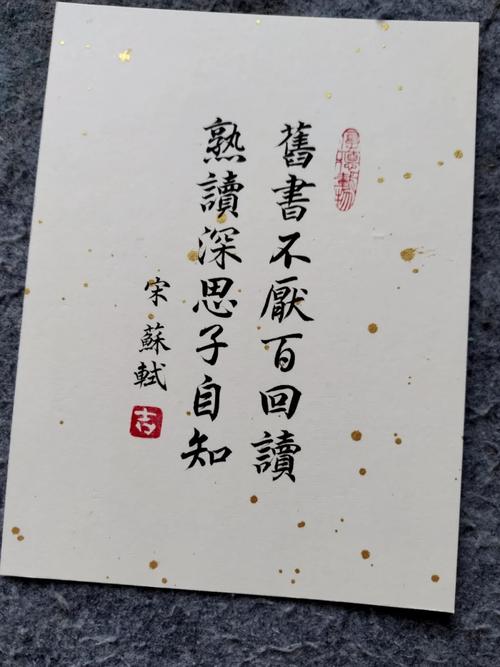 厚德載物
舊書不厭百回讀
熟讀深思子自知
宋蘇軾
吉